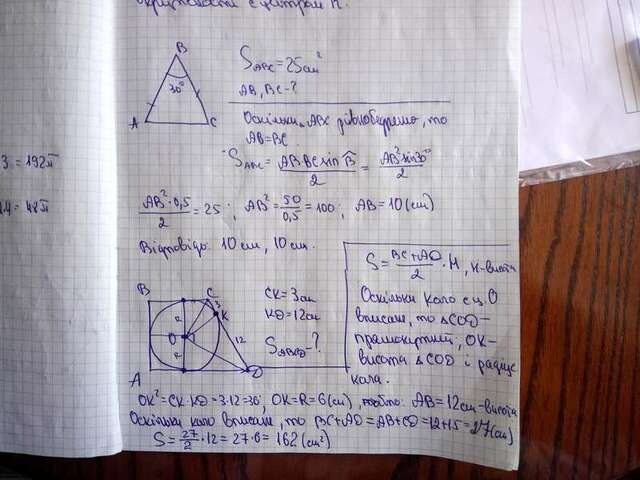 3 = 192π
14 = 48π
A
B
C
30°
S_ABC = 25см²
AB, BC - ?
Оскільки ABC рівнобедрено, то
AB=BC
S_ABC = AB·BC sin B / 2 = AB² sin30° / 2
AB²·0,5 / 2 = 25; AB² = 50 / 0,5 = 100; AB = 10 (см)
Відповідь 10 см, 10 см.
A
B
C
O
K
r
r
3
12
CK = 3см
KD = 12см
S_ABCD - ?
S = BC+AD / 2 · H, H-висота
Оскільки коло є ц. O
вписан, то △COD -
прямокутний, OK-
висота △COD і радіус
кола.
OK² = CK·KD = 3·12 = 36 OK = R = 6(см), тобто AB = 12см - висота
Оскільки коло вписан, то BC+AD = AB+CD = 12+15 = 27(см)
S = 27 / 2 · 12 = 27·6 = 162 (см²)